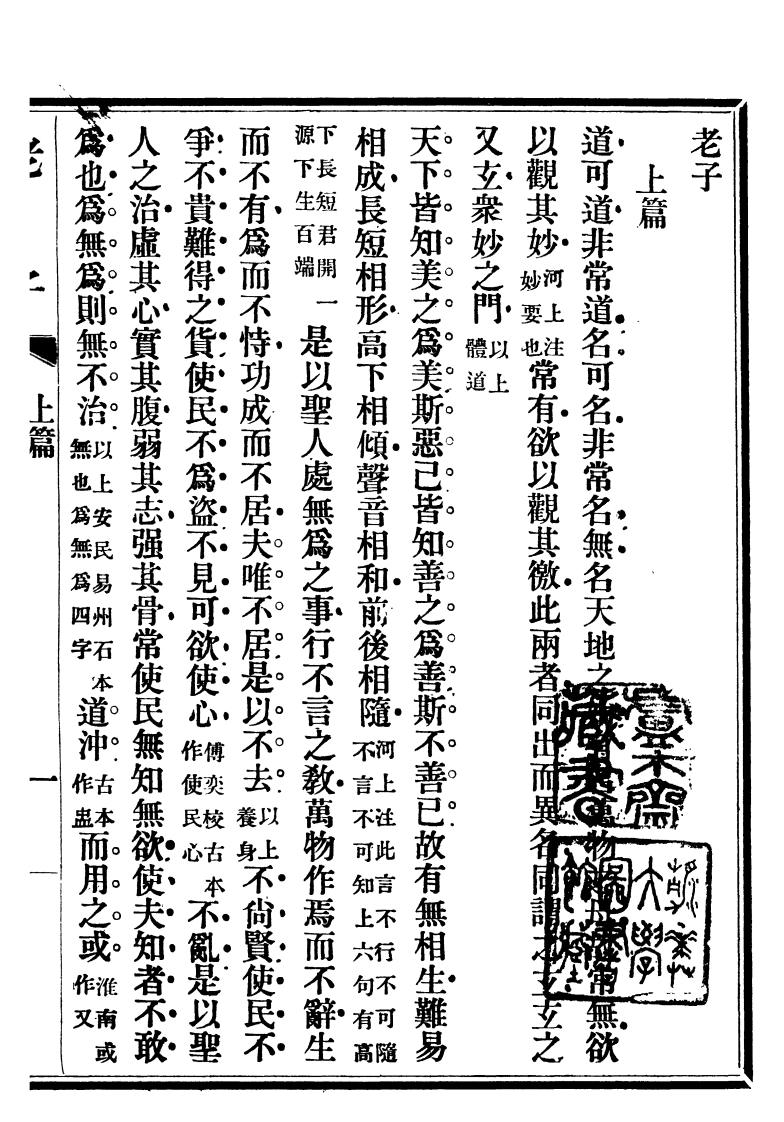 老子
上篇
道可道非常道名可名非常名無名天地之始有名萬物之母故常無欲
以觀其妙河上注妙要也常有欲以觀其徼此兩者同出而異名同謂之玄玄之
又玄衆妙之門以上體道
天下皆知美之爲美斯惡已皆知善之爲善斯不善已故有無相生難易
相成長短相形高下相傾聲音相和前後相隨河上注此言不行不可隨不言不可知上六句有高
下長短君開一源下生百端是以聖人處無爲之事行不言之敎萬物作焉而不辭生
而不有爲而不恃功成而不居夫唯不居是以不去以上養身不尙賢使民不
爭不貴難得之貨使民不爲盜不見可欲使心傅奕校古本作使民心不亂是以聖
人之治虛其心實其腹弱其志强其骨常使民無知無欲使夫知者不敢
爲也爲無爲則無不治以上安民易州石本無也爲無爲四字道沖古本作盅而用之或淮南或作又
上篇
一